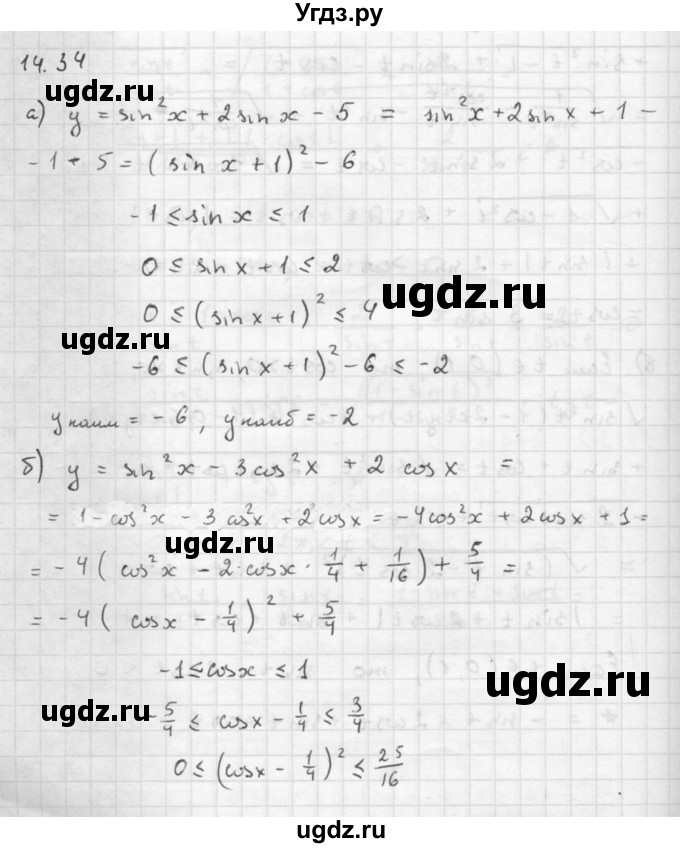 Угдз.ру
14.34
а) y = sin²x + 2 sin x - 5 = sin²x + 2 sin x + 1 -
- 1 - 5 = (sin x + 1)² - 6
-1 ≤ sin x ≤ 1
0 ≤ sin x + 1 ≤ 2
ugdz.ru
0 ≤ (sin x + 1)² ≤ 4
ugdz.ru
-6 ≤ (sin x + 1)² - 6 ≤ -2
y наим = -6, y наиб = -2
б) y = sin²x - 3 cos²x + 2 cos x =
= 1 - cos²x - 3 cos²x + 2 cos x = -4cos²x + 2 cos x + 1 =
ugdz.ru
= -4 ( cos²x - 2·cosx · 1/4 + 1/16 ) + 5/4 =
= -4 ( cosx - 1/4 )² + 5/4
-1 ≤ cosx ≤ 1
ugdz.ru
ugdz.ru
-5/4 ≤ cosx - 1/4 ≤ 3/4
0 ≤ (cosx - 1/4)² ≤ 25/16
ugdz.ru